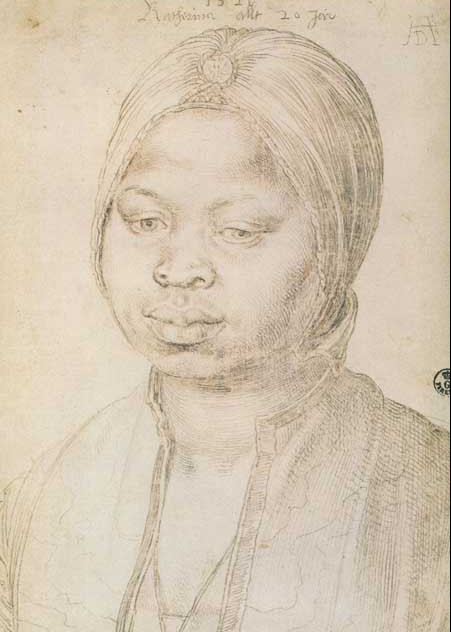 1521
Katherina allt 20 Jar
AD